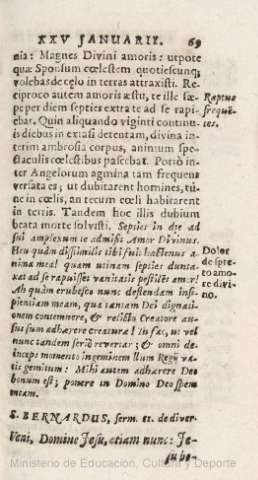 XXV JANUARII. 69
nia: Magnes Divini amoris: utpote
quæ Sponsum cœlestem quotiescunq;
volebas de cœlo in terras attraxisti. Re-
ciproco autem amoris æstu, te ille sæ-
pe per diem septies extra te ad se rapi-
ebat. Quin aliquando viginti continu-
is diebus in extasi detentam, divina in-
terim ambrosia corpus, animum spe-
ctaculis cœlestibus pascebat. Porrò in-
ter Angelorum agmina tam frequens
versata es; ut dubitarent homines, tú-
ne in cœlis, an tecum cœli habitarent
in terris. Tandem hoc illis dubium
beata morte solvisti. Septies in die ad
sui amplexum te admisit Amor Divinus.
Heu quàm dissimilis tibi fui hactenus a
nima mea! quam utinam septies dunta-
xat ad se rapuisset vanitatis pestilēs amor!
Ah quàm erubesco nunc deflendam insi-
pientiam meam, qua tantam Dei dignati-
onem contemnere, & relicto Creatore au-
sus sum adhærere creaturæ! In fac, ut vel
nunc tandem seriò revertar; & omni de-
inceps momento ingeminem illum Regij va-
tis gemitum: Mihi autem adhærere Deo
bonum est; ponere in Domino Deo spem
meam.
Raptus
frequē-
tes.
Dolor
de spre-
to amo-
re divi-
no.
S. BERNARDUS, serm. 81. de diver-
Veni, Domine Jesu, etiam nunc: Je-
su be-
Ministerio de Educación, Cultura y Deporte